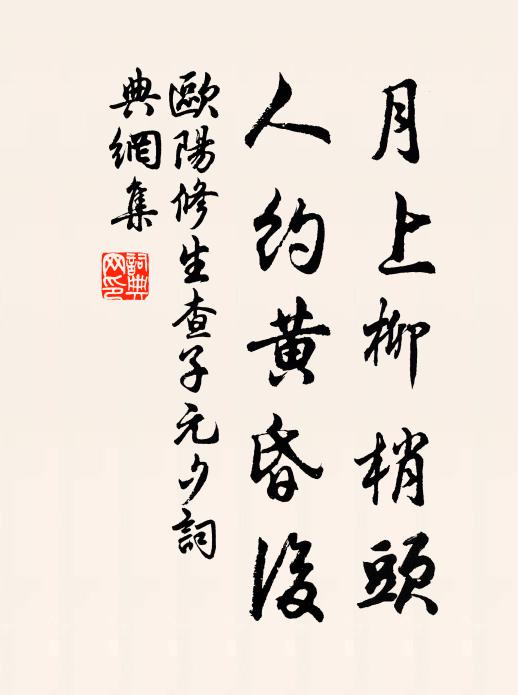 月上柳梢頭
人約黄昏後
歐陽修生查子元夕詞
典網集
詞典
网印